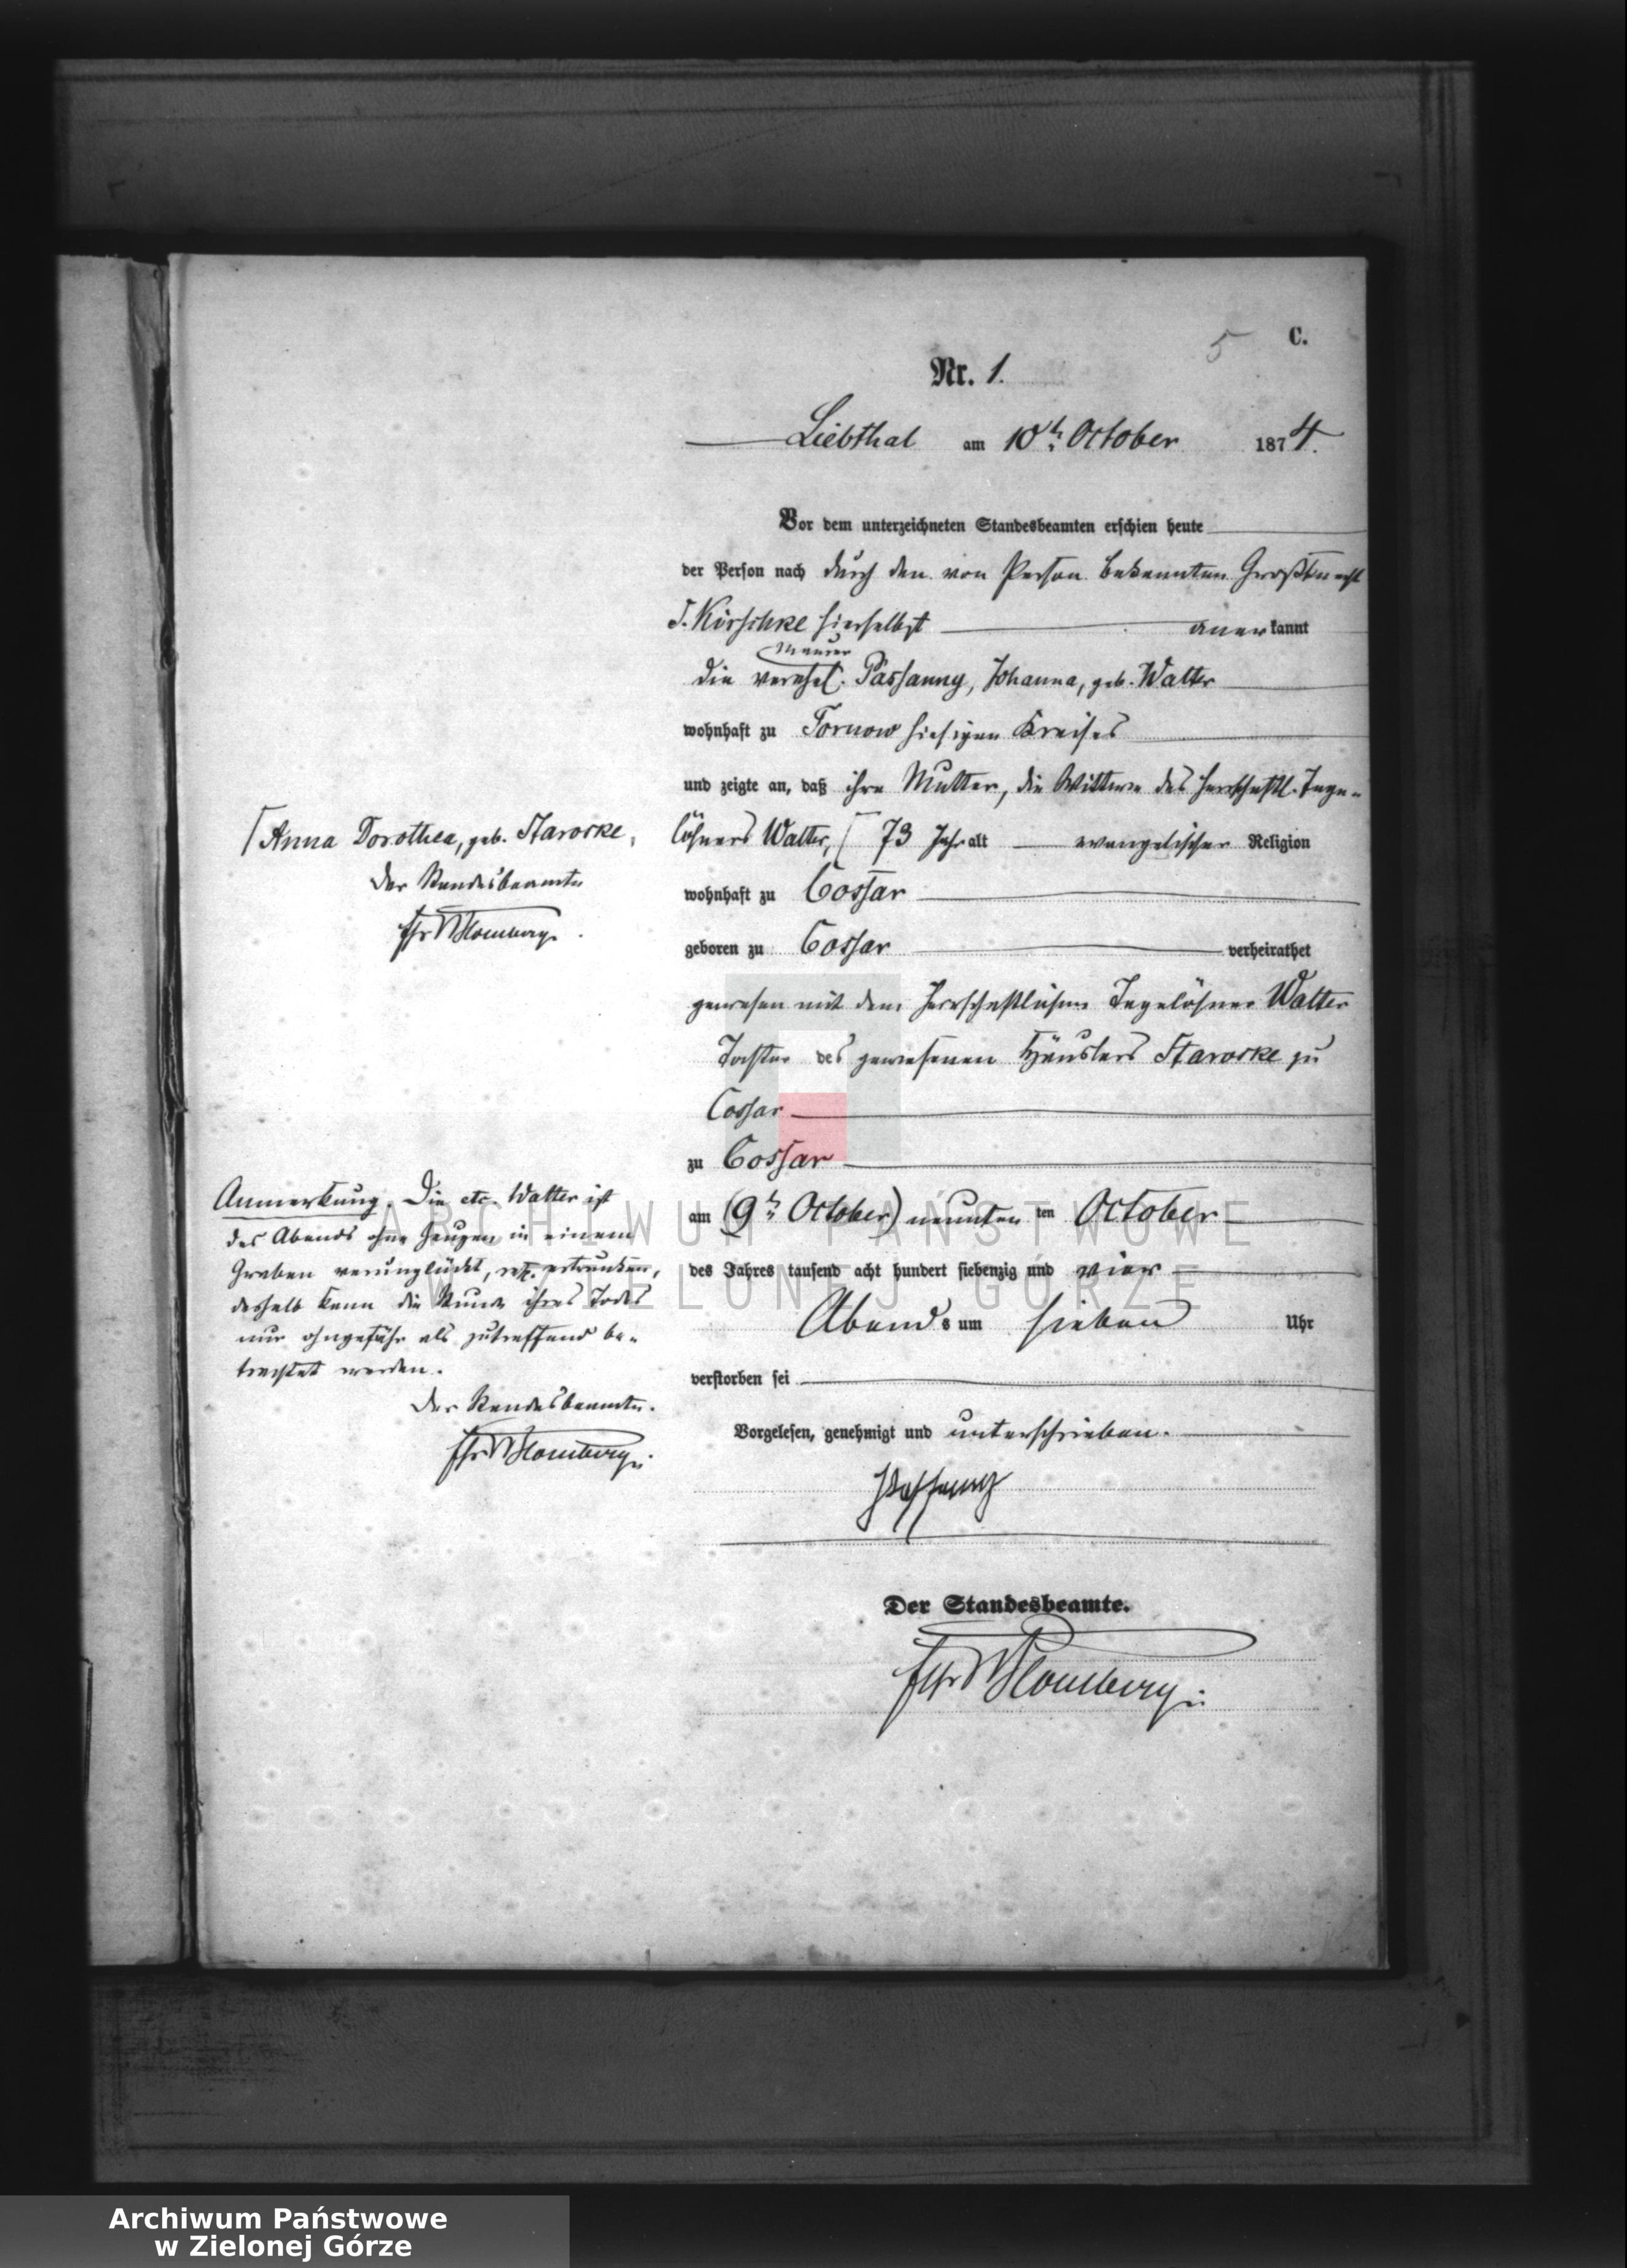 5
C.
Nr. 1.
Liebthal am 10t. October 1874.
Vor dem unterzeichneten Standesbeamten erschien heute
der Person nach durch den von Person bekannten Großknecht
J. Kirschke hierselbst anerkannt
Maurer
die verehel. Passanny, Johanna, geb. Walter
wohnhaft zu Tornow hiesigen Kreises
und zeigte an, daß ihre Mutter, die Wittwe des herrschaftl. Tage-
löhners Walter, ⌈ 73 Jahr alt evangelischer Religion
⌈ Anna Dorothea, geb. Staroske,
Der Standesbeamte
wohnhaft zu Cossar
geboren zu Cossar verheirathet
gewesen mit dem herrschaftlichen Tagelöhner Walter
Tochter des gewesenen Häuslers Staroske zu
Cossar
zu Cossar
am (9t. October) neunten ten October
des Jahres tausend acht hundert siebenzig und vier
Abends um sieben Uhr
verstorben sei
Anmerkung. Die etc. Walter ist
des Abends ohne Zeugen in einem
Graben verunglückt, resp. ertrunken,
deshalb kann die Stunde ihres Todes
nur ohngefähr als zutreffend be-
trachtet werden.
Der Standesbeamte.
Vorgelesen, genehmigt und unterschrieben.
Passanny
Der Standesbeamte.
ARCHIWUM PAŃSTWOWE
W ZIELONEJ GÓRZE
Archiwum Państwowe
w Zielonej Górze